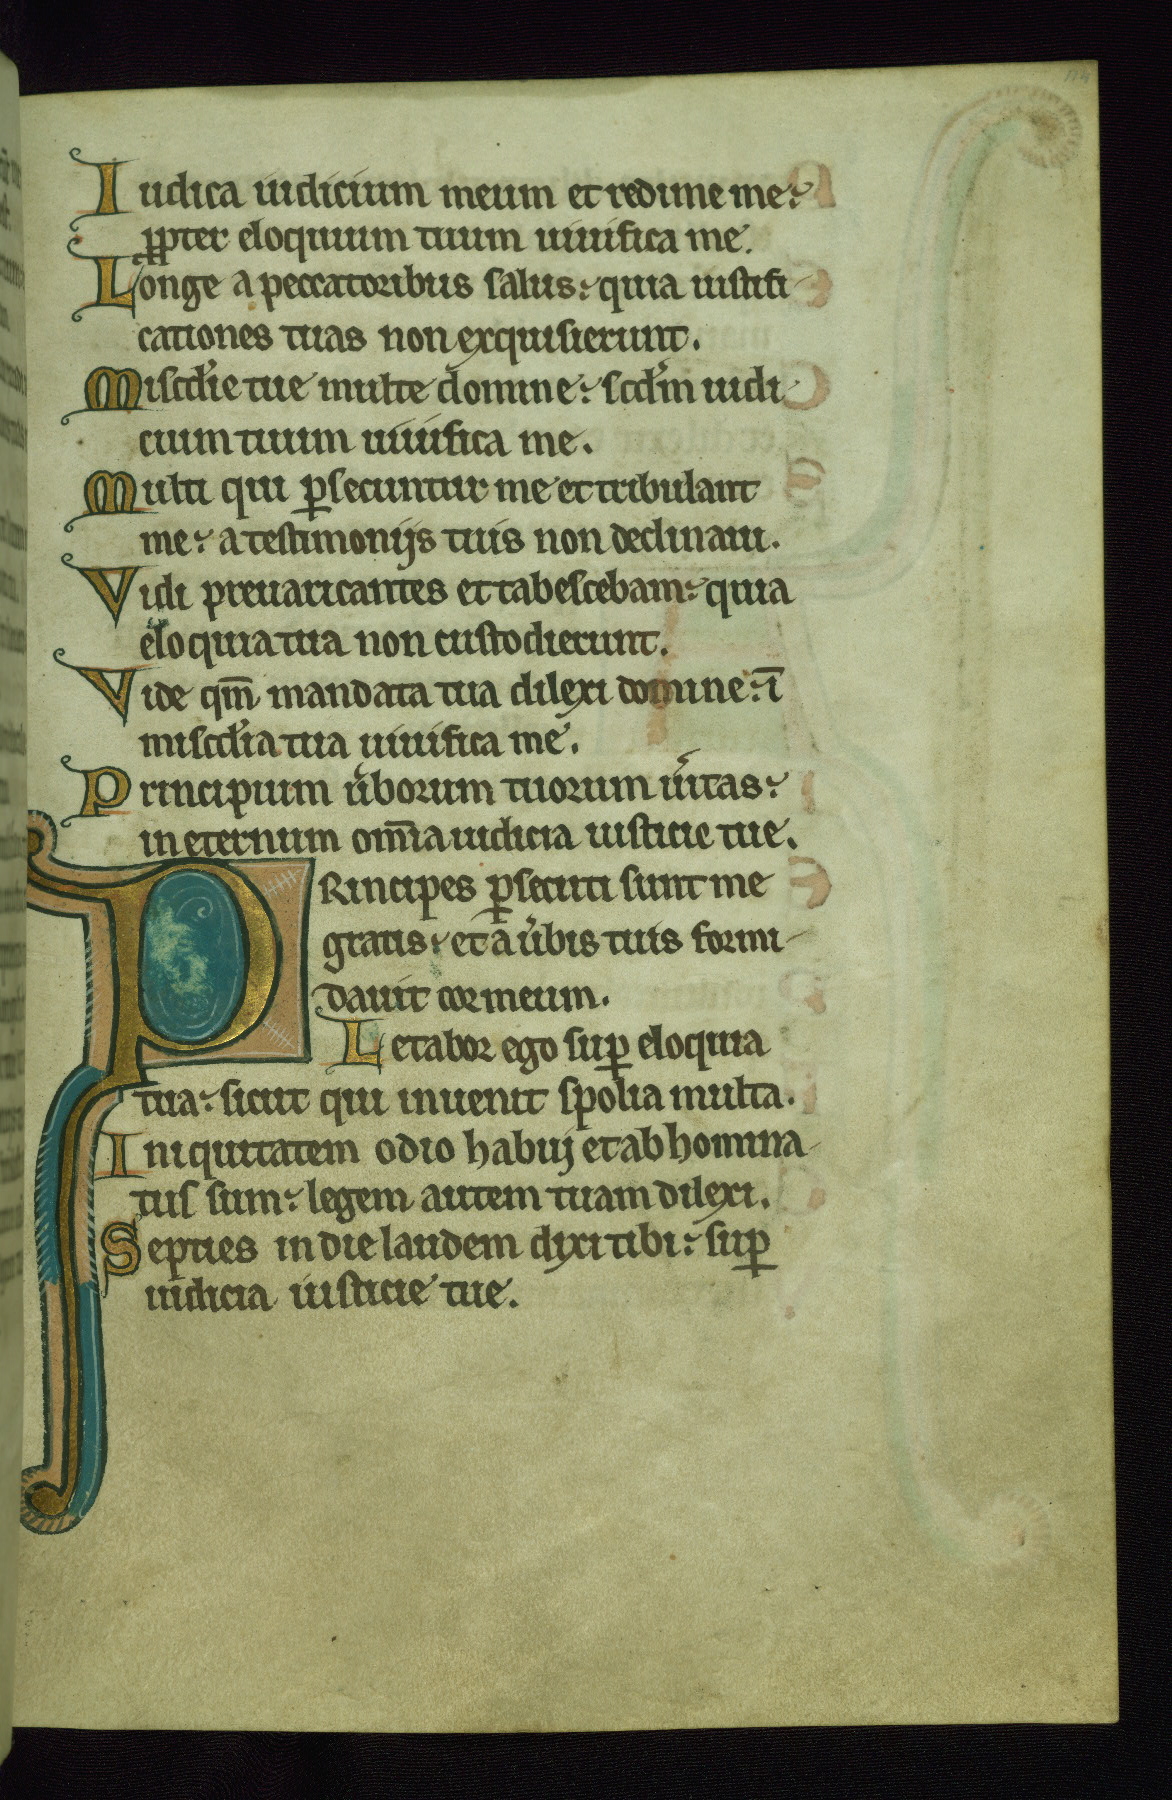 Iudica iudicium meum et redime me:
ꝓpter eloquium tuum uiuifica me.
Longe a peccatoribus salus: quia iustifi
cationes tuas non exquisierunt.
Miscd̾ie tue multe domine: scd̾m iudi
cium tuum uiuifica me.
Multi qui ꝑsecuntur me et tribulant
me: a testimonijs tuis non declinaui.
Vidi preuaricantes et tabescebam: quia
eloquia tua non custodierunt.
Vide qm̄ mandata tua dilexi domine: ī
miscd̾ia tua uiuifica me.
Principium u̾borum tuorum u̾itas:
in eternum om̄ia iudicia iusticie tue.
PRincipes ꝑsecuti sunt me
gratis: et a u̾bis tuis formi
dauit cor meum.
Letabor ego suꝑ eloquia
tua: sicut qui inuenit spolia multa.
Iniquitatem odio habuj et abhomina
tus sum: legem autem tuam dilexi.
Septies in die laudem dixi tibi: suꝑ
iudicia iusticie tue.